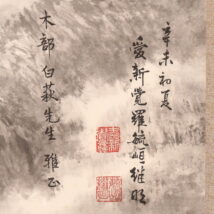 辛未初夏
愛新覺羅毓峘继明
木部 白萩 先生 雅正